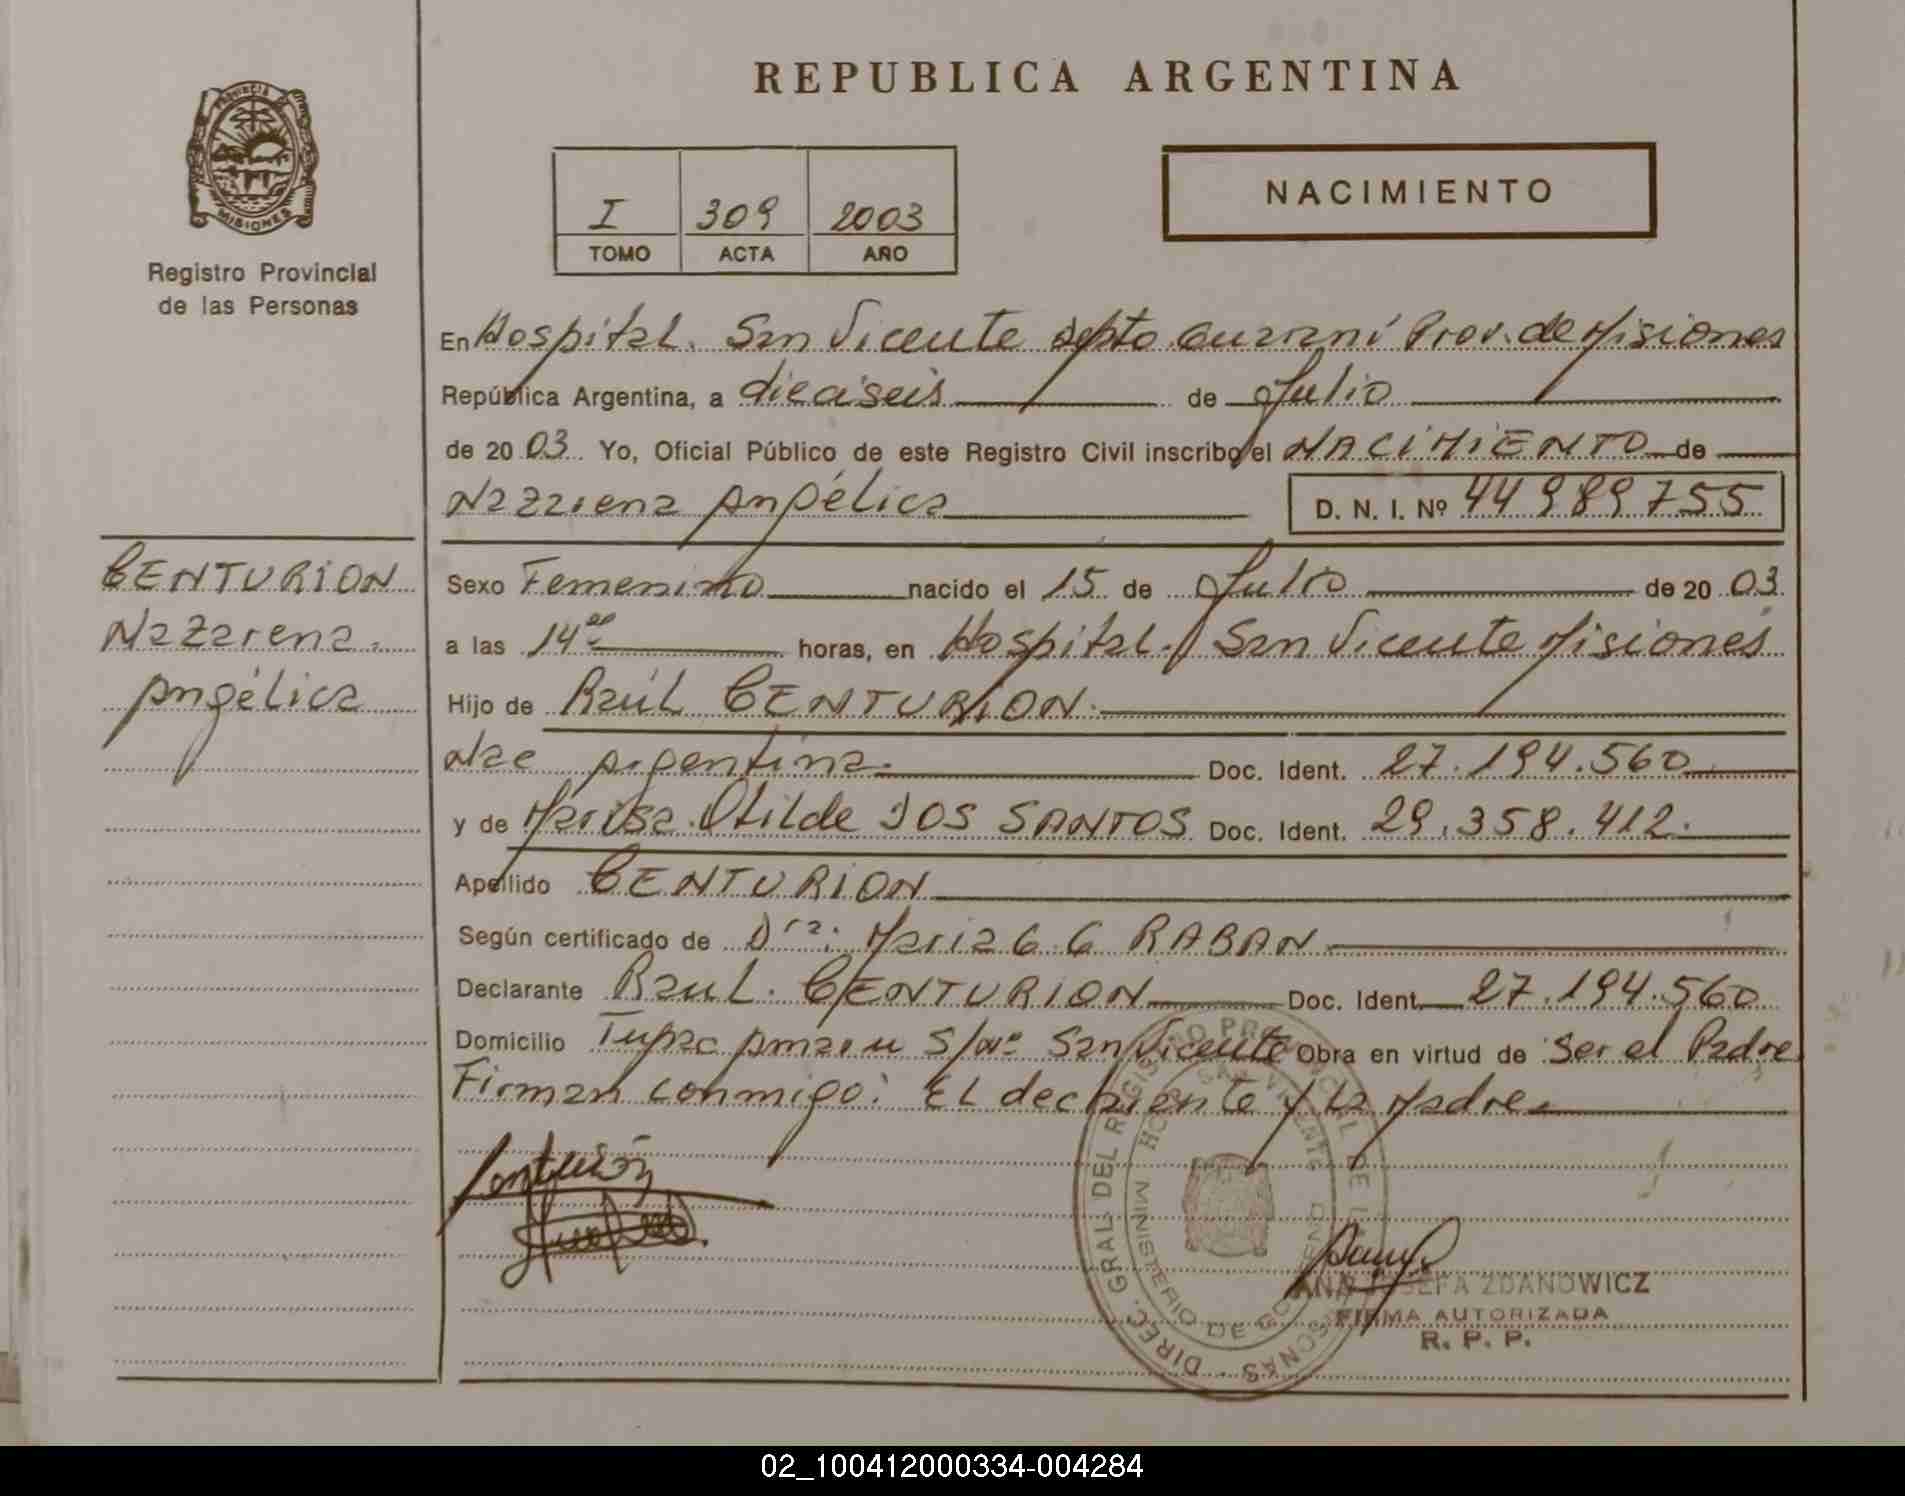 REPUBLICA ARGENTINA
PROVINCIA DE
MISIONES
Registro Provincial
de las Personas
NACIMIENTO
I 309 2003
TOMO ACTA AÑO
En Hospital. San Vicente Depto Guaraní Prov. de Misiones
República Argentina, a dieciseis de Julio
de 20 03 Yo, Oficial Público de este Registro Civil inscribo el NACIMIENTO de
Nazarena Angélica D. N. I. Nº 44989755
CENTURION
Nazarena
Angélica
Sexo Femenino nacido el 15 de Julio de 20 03
a las 14 horas, en Hospital. San Vicente Misiones
Hijo de Raúl CENTURION
Nac Argentina. Doc. Ident. 27.194.560
y de Marisa Otilde DOS SANTOS Doc. Ident. 29.358.412.
Apellido CENTURION
Según certificado de Dra. Maria G. G RABAN
Declarante Raul. CENTURION Doc. Ident. 27.194.560
Domicilio Tupac Amaru S/Nº San Vicente Obra en virtud de Ser el Padre
Firman conmigo: El declarante y la Madre
Centurión
DIREC. GRAL. DEL REGISTRO PROVINCIAL DE LAS PERSONAS
MINISTERIO DE GOBIERNO
ANA JOSEFA ZDANOWICZ
FIRMA AUTORIZADA
R. P. P.
02_100412000334-004284